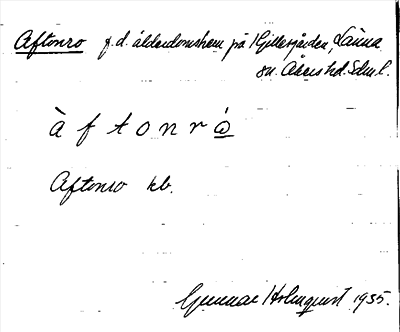 Aftonro f.d. ålderdomshem på Kjellesgården, Länna
sn. Åkers hd. Sdml.
à f t o n r ó̲
Aftonro kb.
Gunnar Holmquist 1935.